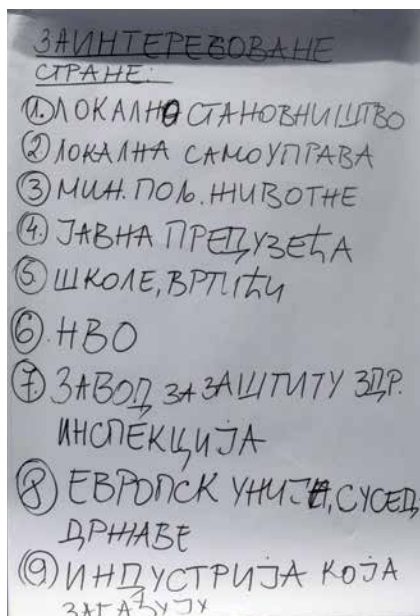 ЗАИНТЕРЕСОВАНЕ
СТРАНЕ:
1. ЛОКАЛНО СТАНОВНИШТВО
2 ЛОКАЛНА САМОУПРАВА
3 МИН. ПОЉ. ЖИВОТНЕ
4. ЈАВНА ПРЕДУЗЕЋА
5. ШКОЛЕ, ВРТИЋИ
6. НВО
7. ЗАВОД ЗА ЗАШТИТУ ЗДР.
ИНСПЕКЦИЈА
8 ЕВРОПСК УНИЈА, СУСЕД
ДРЖАВЕ
9 ИНДУСТРИЈА КОЈА
ЗАГАЂУЈУ